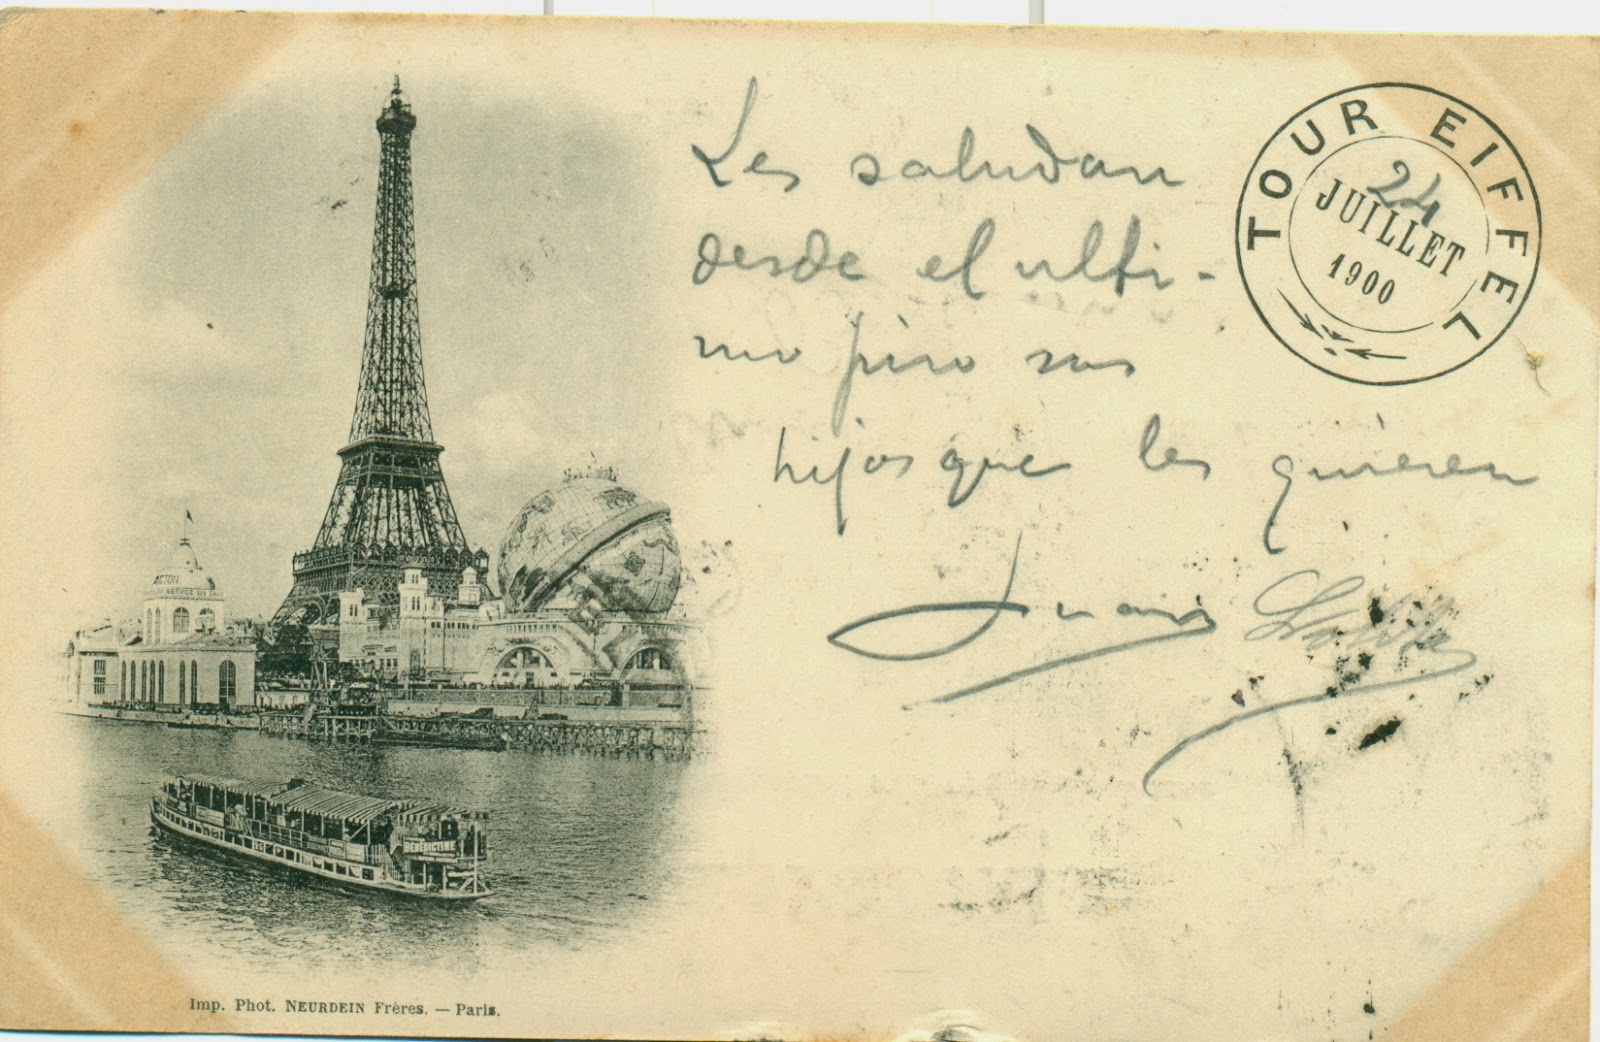 Les saludan
desde el ulti-
mo piso sus
hijos que les quieren
Juan
TOUR EIFFEL
24
JUILLET
1900
BÉNÉDICTINE
Imp. Phot. NEURDEIN Frères. — Paris.